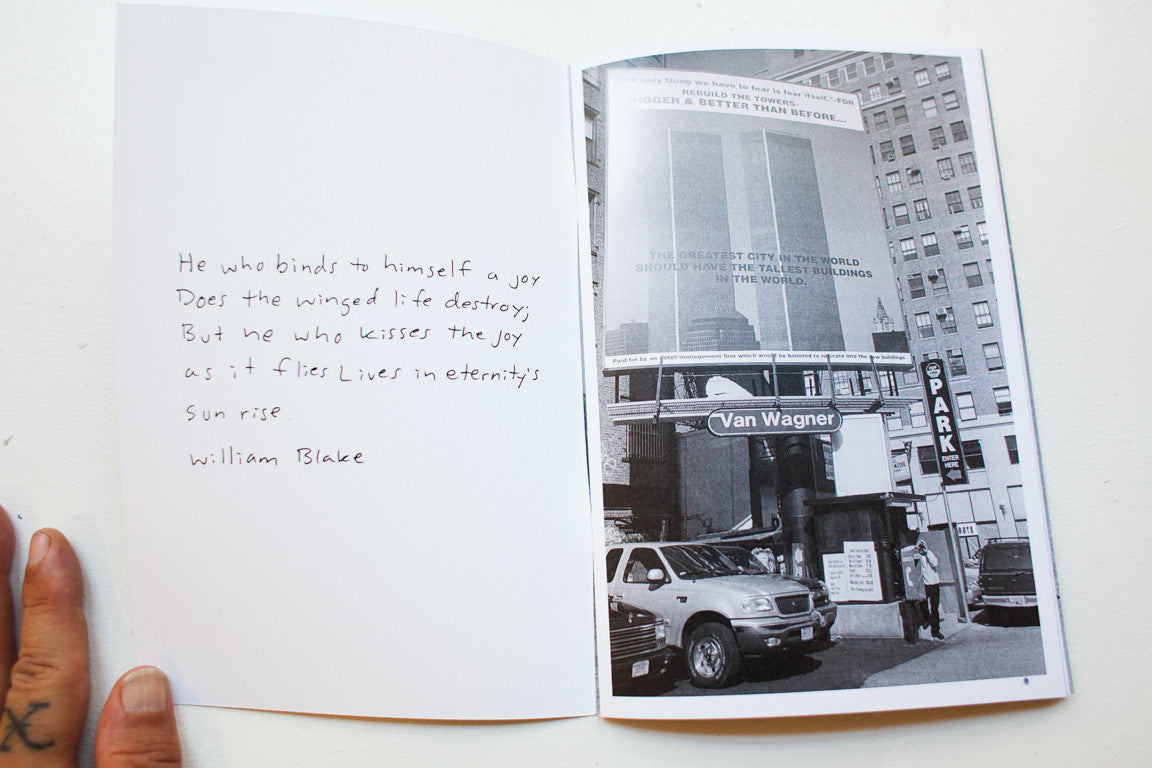 He who binds to himself a joy
Does the winged life destroy;
But he who kisses the joy
as it flies Lives in eternity's
Sun rise.
William Blake
"The only thing we have to fear is fear itself."-FDR
REBUILD THE TOWERS..
BIGGER & BETTER THAN BEFORE...
THE GREATEST CITY IN THE WORLD
SHOULD HAVE THE TALLEST BUILDINGS
IN THE WORLD.
Paid for by an asset management firm which would be honored to relocate into the new buildings.
Van Wagner
PARK
ENTER
HERE
X